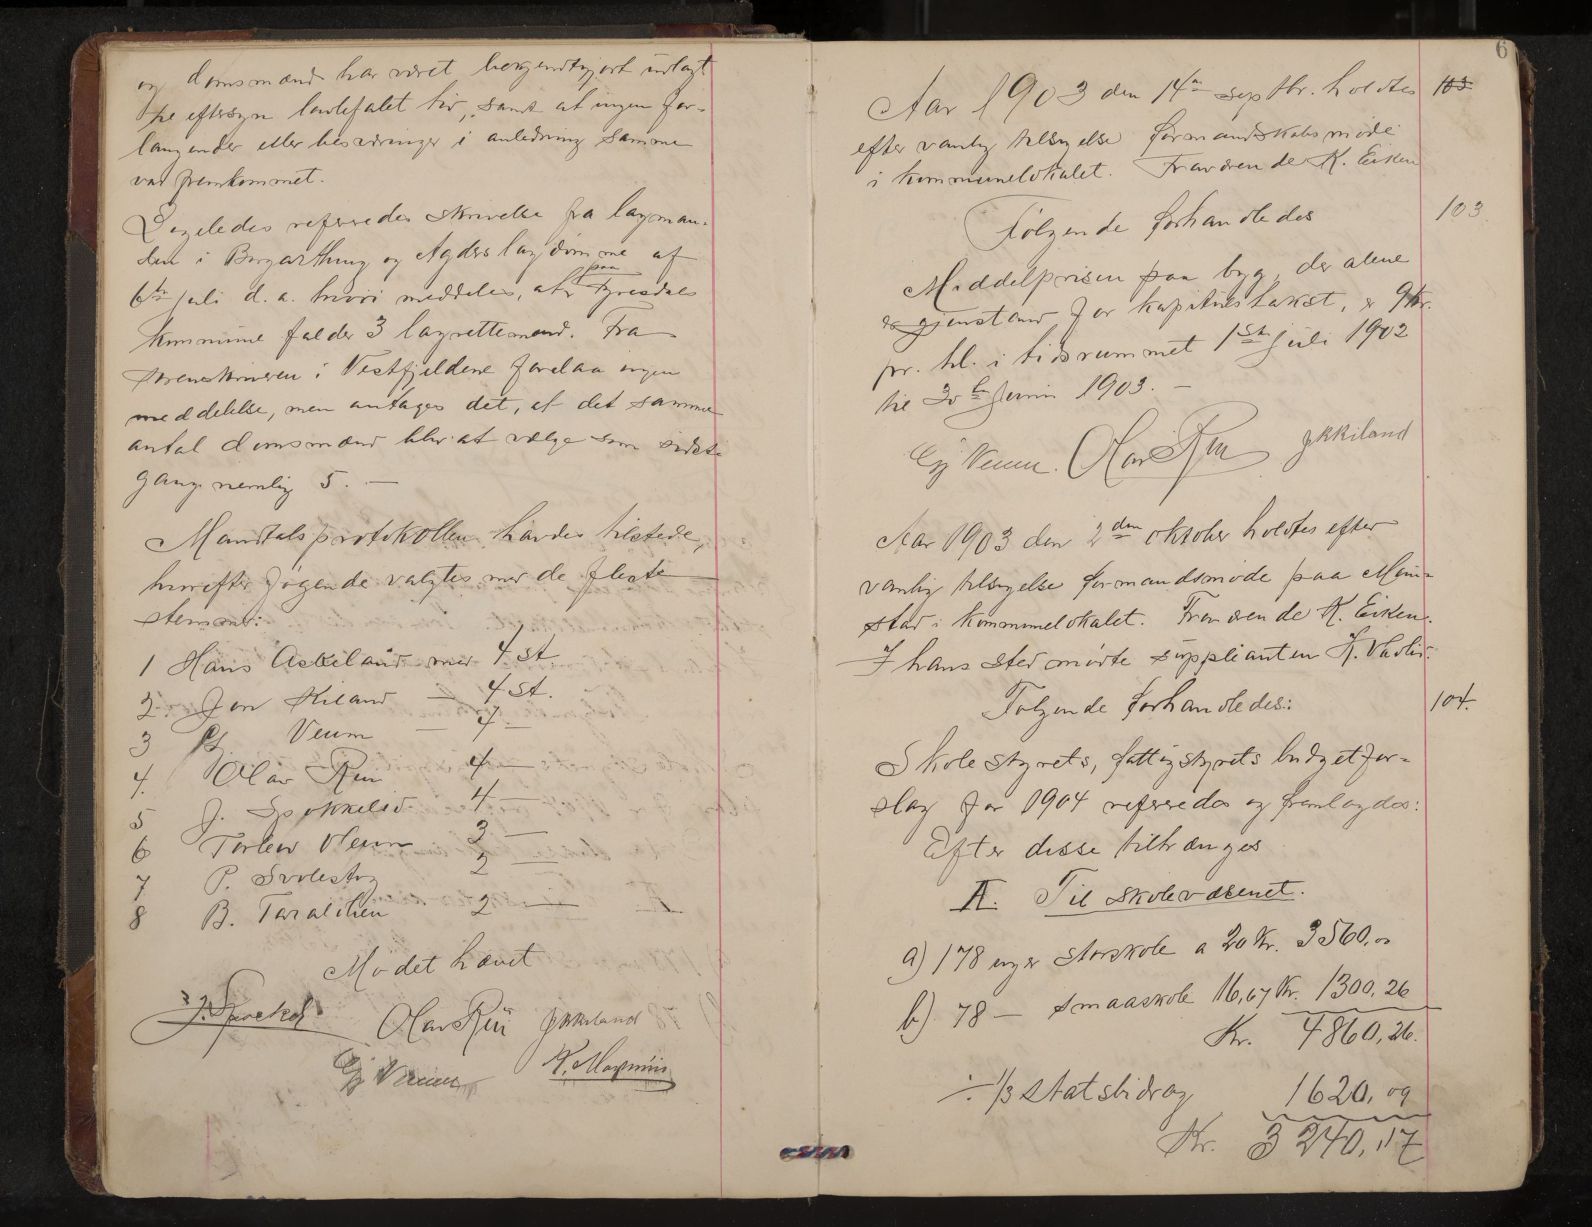 og domsmænd har været bekjendtgjort udlagt
til eftersyn lovbefalet tid, samt at ingen for-
langender eller besværinger i anledning samme
var fremkommet.
Ligeledes refereredes skrivelse fra lagman-
den i Borgarthing og Agders lagdømme af
6te juli d. a. hvori meddeles, at paa Fyresdals
kommune falder 3 lagrettemænd. Fra
sorenskriveren i Vestfjeldene forelaa ingen
meddelelse, men antages det, at det samme
antal domsmænd blir at vælge som sidste
gang nemlig 5. —
Mandtalsprotokollen havdes tilstede,
hvorefter følgende valgtes med de fleste
stemmer:
1 Hans Askeland med 4 st
2 Jon Kiland — 4 st.
3 Veum — 4 —
4. Olav Rui 4 —
5 J. Spokkelid 4 —
6 Torleiv Veum 3 —
7 P. Svolestog 2 —
8 B. Taraldlien 2 —
Mødet hævet
J. Spockeli Olav Rui JKkiland
Veum K. Mognuis
6
Aar 1903 den 14de septbr. holdtes 103
efter vanlig tilsigelse formandskabsmøde
i kommunelokalet. Fraværende K. Eiken
Følgende forhandledes 103
Middelprisen paa byg, der alene
er gjenstand for kapitelstakst, er 9 kr.
pr. hl. i tidsrummet 1ste juli 1902
til 30te juni 1903. —
Veum. Olav Rui JKkiland
Aar 1903 den 2den oktober holdtes efter
vanlig tilsigelse formandsmøde paa Moi-
stad i kommunelokalet. Fraværende K. Eiken.
I hans sted mødte suppleanten K. Vadlid.
Følgende forhandledes: 104.
Skolestyrets, fattigstyrets budgetfor-
slag for 1904 refereredes og fremlagdes:
Efter disse tiltrænges
A. Til skolevæsenet.
a) 178 uger storskole a 20 Kr. 3560,00
b). 78 — smaaskole 16,67 Kr. 1300,26
Kr. 4860,26.
÷ 1/3 statsbidrag 1620,09
Kr. 3240,17